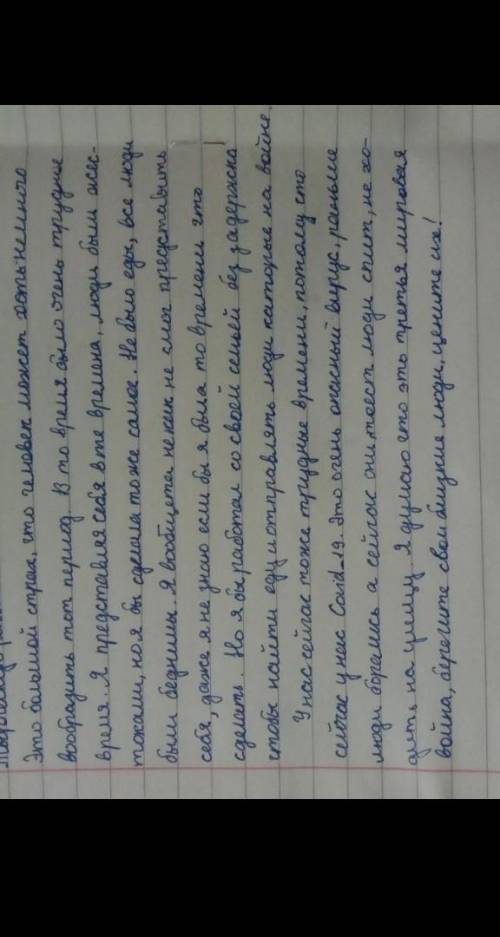 Это большой страх, что человек может хоть немного
вообразить тот период. В то время было очень трудние
время. Я представляя себя в те времена, люди были жес-
токами, но я бы сделала тоже самое. Не было еды, все люди
были бедними. Я вообщета не как не смог представить
себя, даже я не знаю если бы я была то времени что
сделать. Но я бы работал со своей семьей без задержка
чтобы найти еду и отправлять люди каторые на войне.
У нас сейчас тоже трудные времени, потому что
сейчас у нас Covid-19. Это очень опасный вирус, раньше
люди боролись а сейчас они просто люди спит, не хо-
дить на улицу. Я думаю что это третья мировая
война, берегите свои близние люди, цените их!